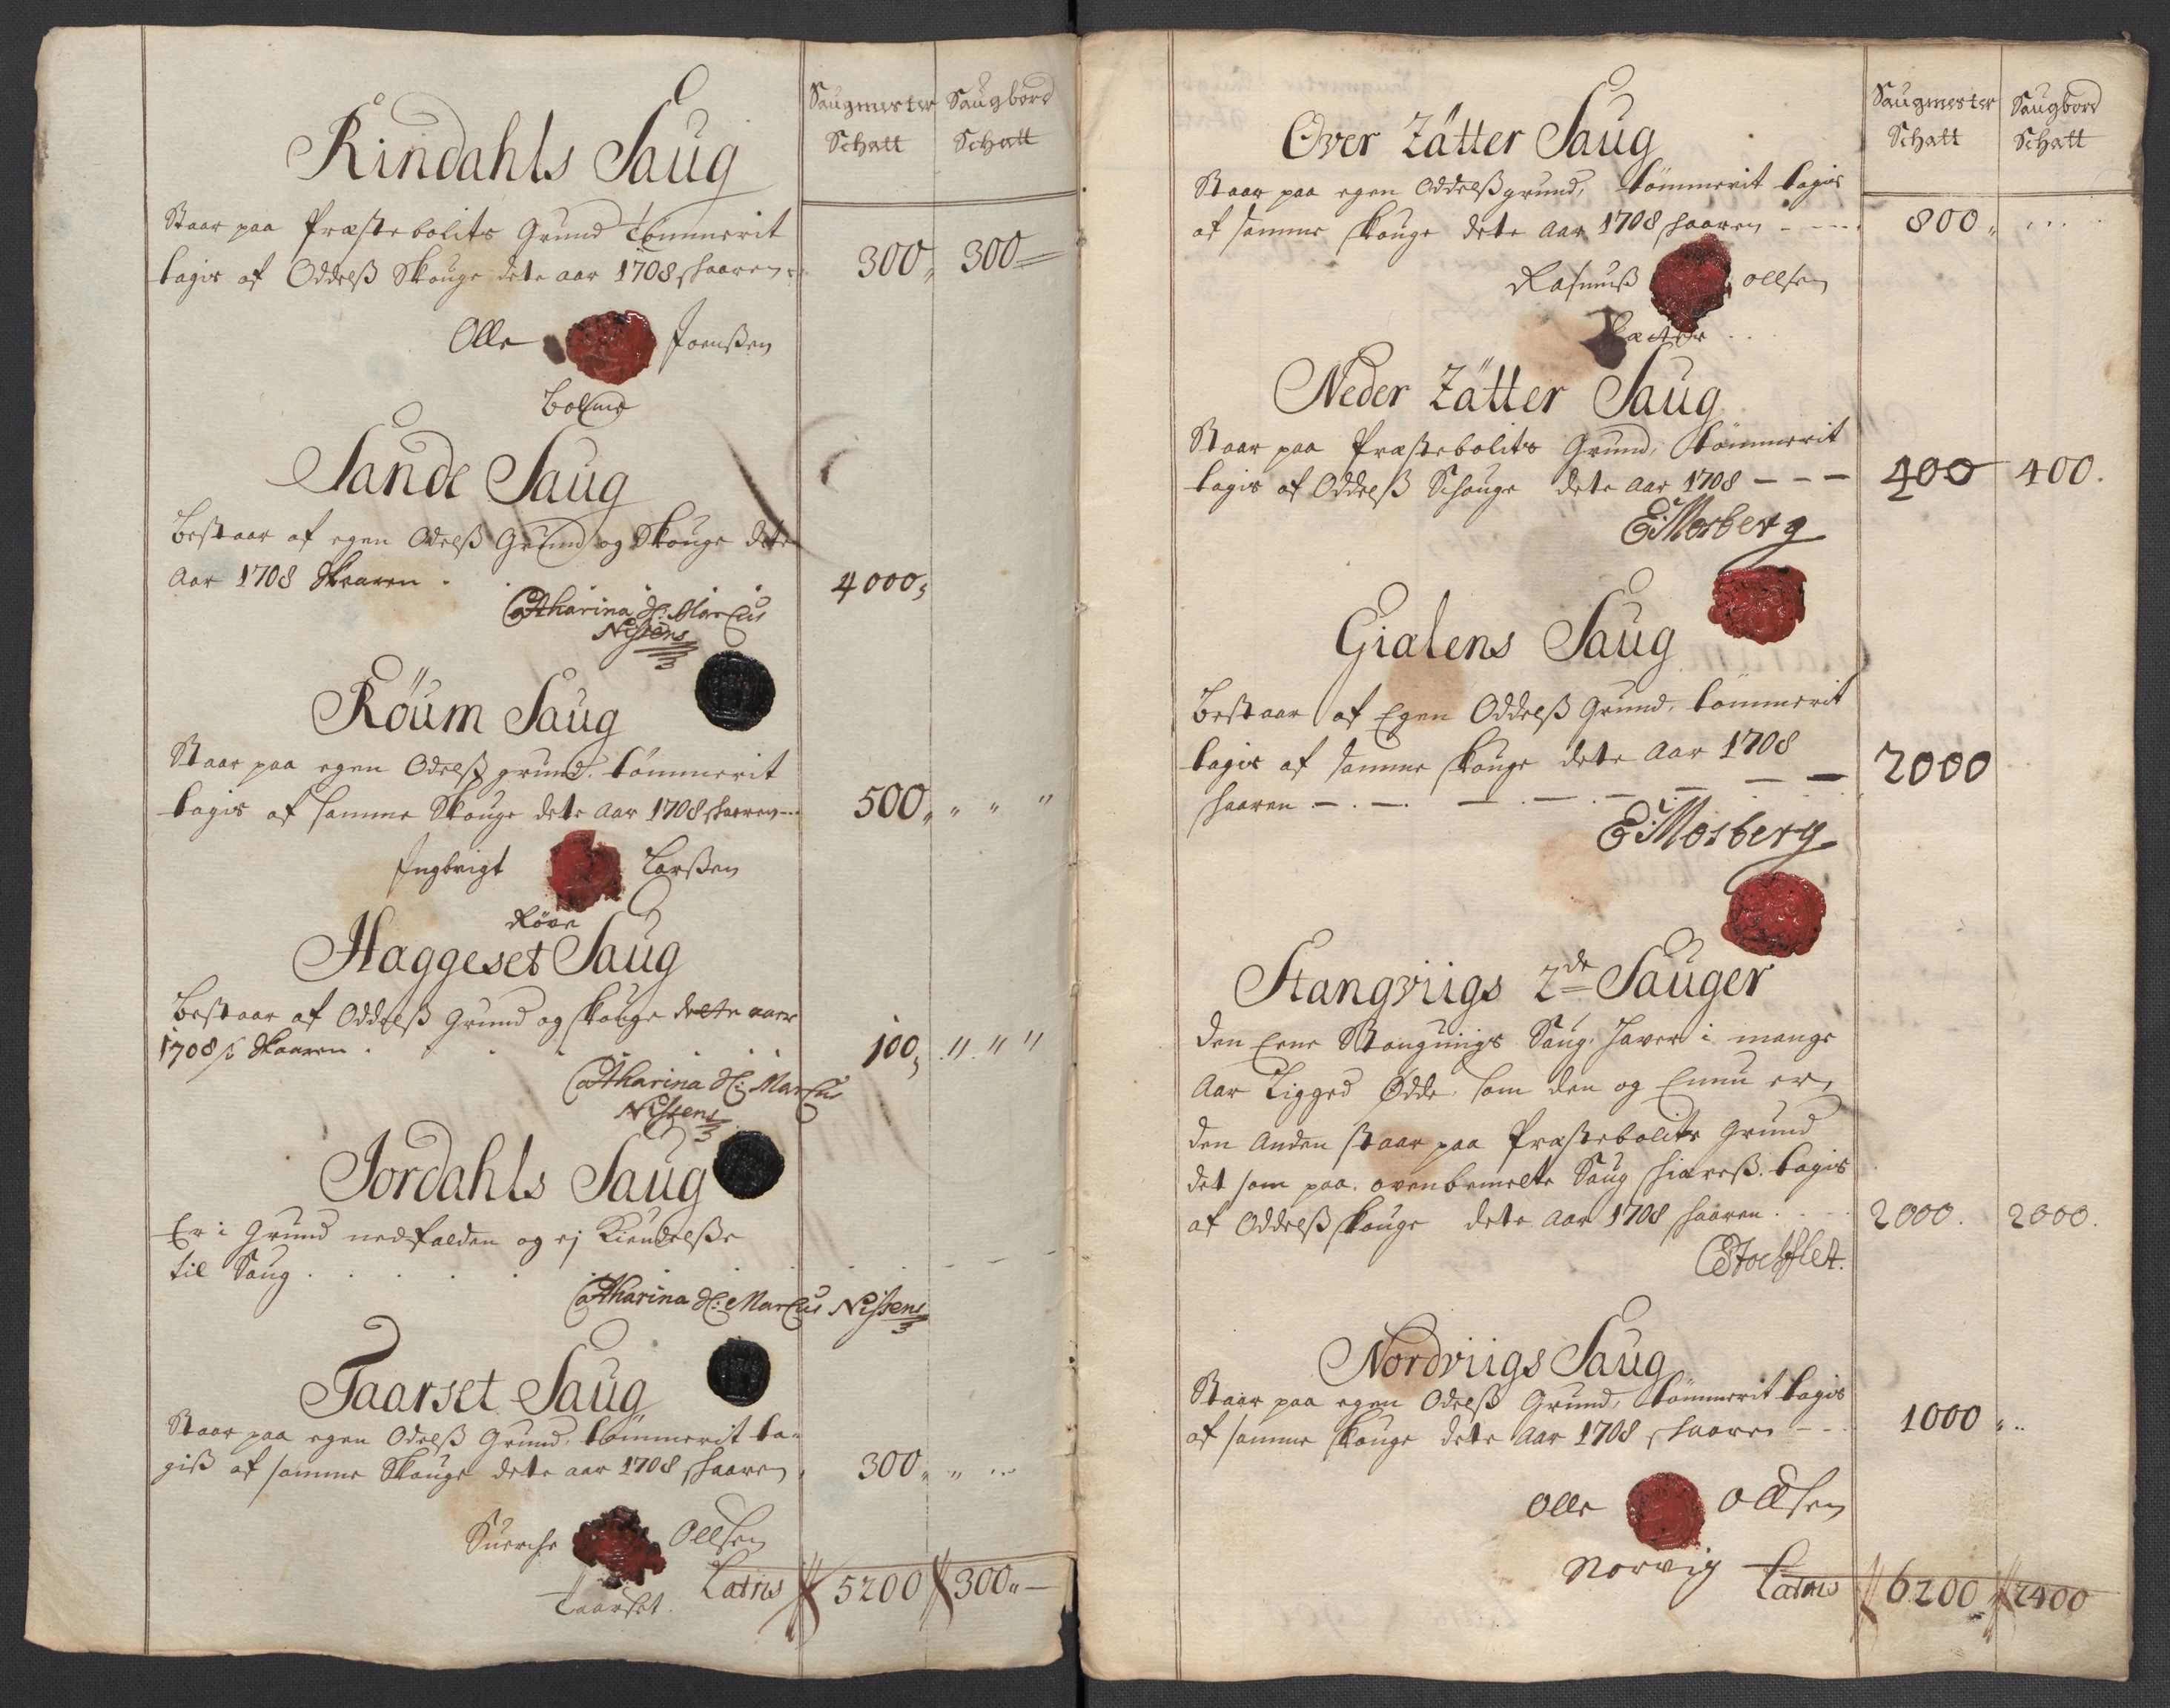 Saugmester Saugbord
Schatt Schatt
Rindahls Saug
Staar paa Præstebolits Grund tømmerit
tagis af Oddelß Skouge dete aar 1708 skaaren 300 300
Olle Joenßen
Bolme
Sande Saug
Bestaar af egen Odelß Grund og Skouge dete
Aar 1708 Skaaren 4000
Catharina Sl: Marcus
Nissens
Röum Saug
Staar paa egen Odelß grund. tömmerit
tagis af samme Skouge dete Aar 1708 skaaren 500 " " "
Ingbrigt Larßen
Röve
Haggeset Saug
Bestaar af Oddelß Grund og skouge dette aar
1708 Skaaren 100 " " "
Catharina Sl: Marcus
Nissens
Jordahls Saug
Er i Grund nedfalden og ej Kiendelße
til Saug
Catharina Sl: Marcus Nissens
Taarset Saug
Staar paa egen Odelß Grund, tömmerit ta-
giß af samme Skouge dete aar 1708 skaaren 300
Suerche Ollsen
Taarset
Latus 5200 300
Saugmester Saugbord
Schatt Schatt
Over Zätter Saug
Staar paa egen Oddelß grund, tömmerit tagis
af samme skouge dete Aar 1708 skaaren 800
Rasmuß Ollsen
Neder Zätter Saug
Staar paa Præstebolits Grund, tömmerit
tagis af Oddelß Schouge dete Aar 1708 400 400.
E: Mosberg
Gialens Saug
Bestaar af Egen Oddelß Grund, tömmerit
tagis af samme skouge dete Aar 1708
skaaren 2000
E: Mosberg
Stangviigs 2de Sauger
Den Eene Stangviigs Saug, haver i mange
Aar Ligged Ødde som den og Ennu er,
den Anden staar paa Præstebolits Grund
det som paa ovenbemelte Saug skiæreß tagis
af Oddelß skouge dete Aar 1708 skaaren 2000. 2000.
CStochflet.
Nordviigs Saug
Staar paa egen Odelß Grund, tömmerit tagis
af samme skouge dete Aar 1708 skaaren 1000
Olle Olsen
Norvig
Latus 6200 2400